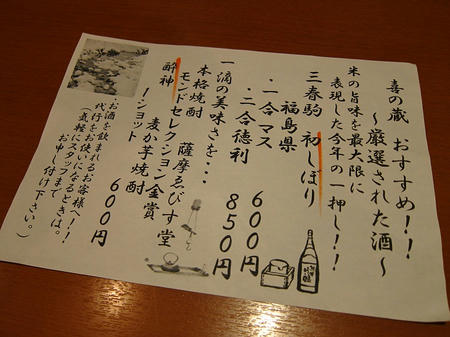 喜の蔵 おすすめ!!
~厳選された酒~
米の旨味を最大限に
表現した今年の一押し!!
三春駒 初しぼり
福島県
・一合マス 600円
・二合徳利 850円
一滴の美味さを・・・
本格焼酎 薩摩ゑびす堂
モンドセレクション金賞
酔神 麦か芋焼酎
1ショット 600円
・お酒を飲まれるお客様へ!!
代行をお使いになるときは。
(気軽にスタッフまで
お申し付け下さい。)